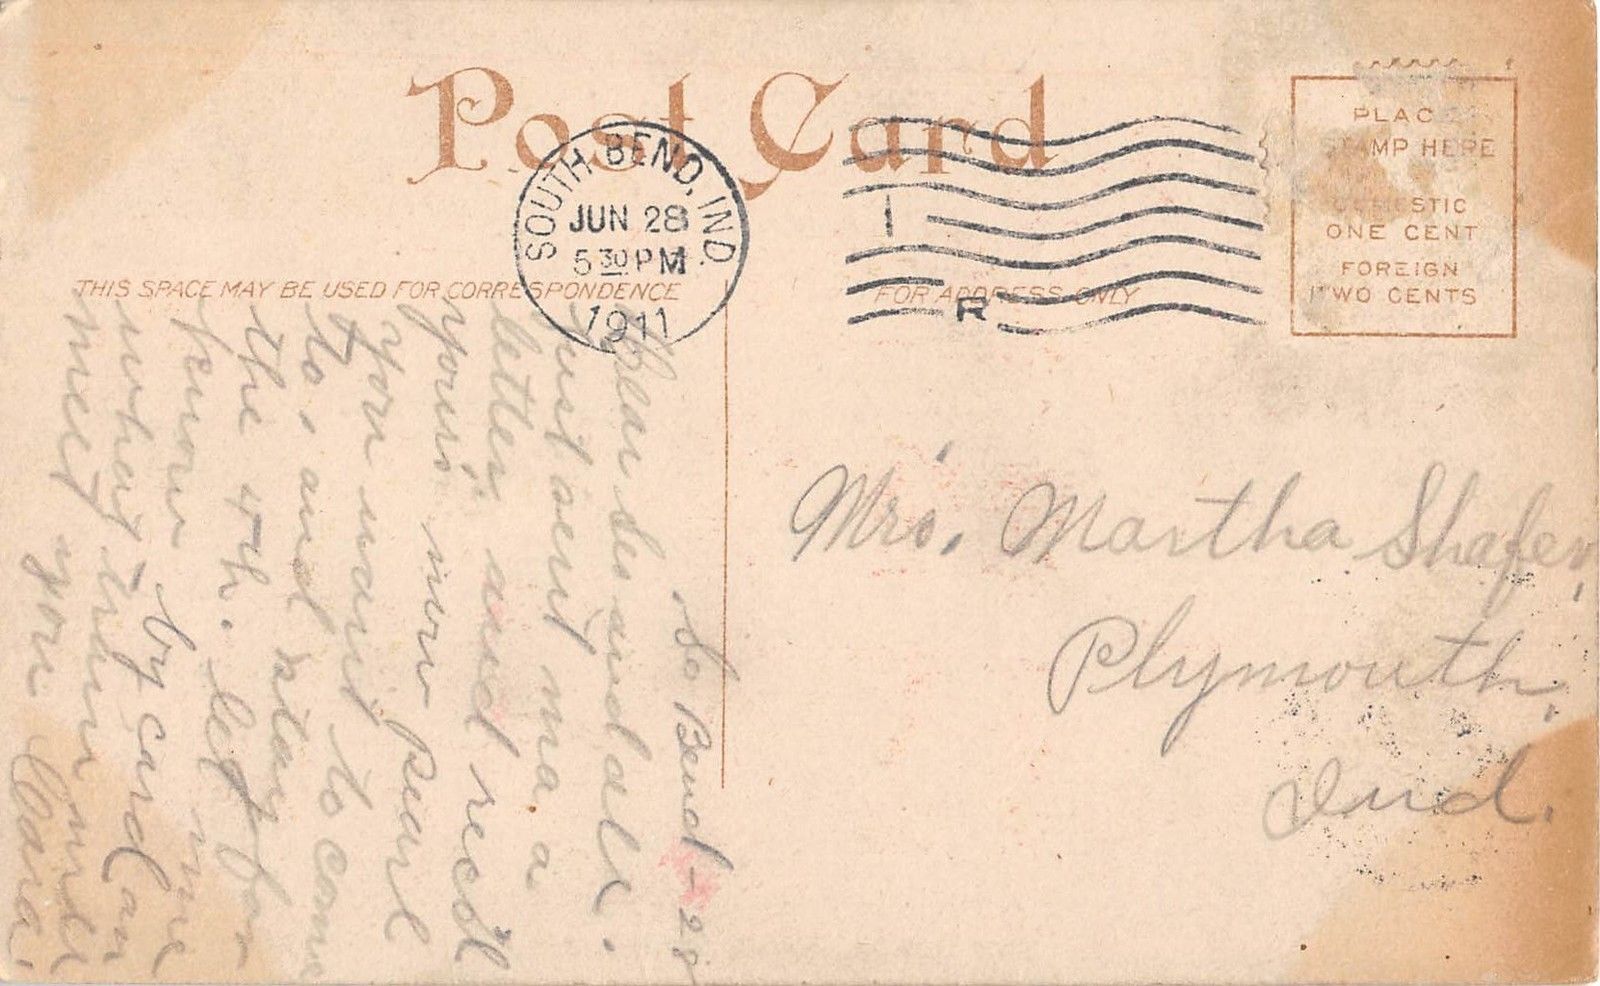 Post Card
SOUTH BEND, IND.
JUN 28
5 30 PM
1911
1
R
THIS SPACE MAY BE USED FOR CORRESPONDENCE
FOR ADDRESS ONLY
PLACE
STAMP HERE
DOMESTIC
ONE CENT
FOREIGN
TWO CENTS
So Bend - 28
Dear Sis and all.
Just sent ma a
letter and rec'd
yours now
you want to come
to, and stay for
the 4th. let me
know by card on
what train
meet you Clara.
Mrs. Martha Shafer,
Plymouth,
Ind.